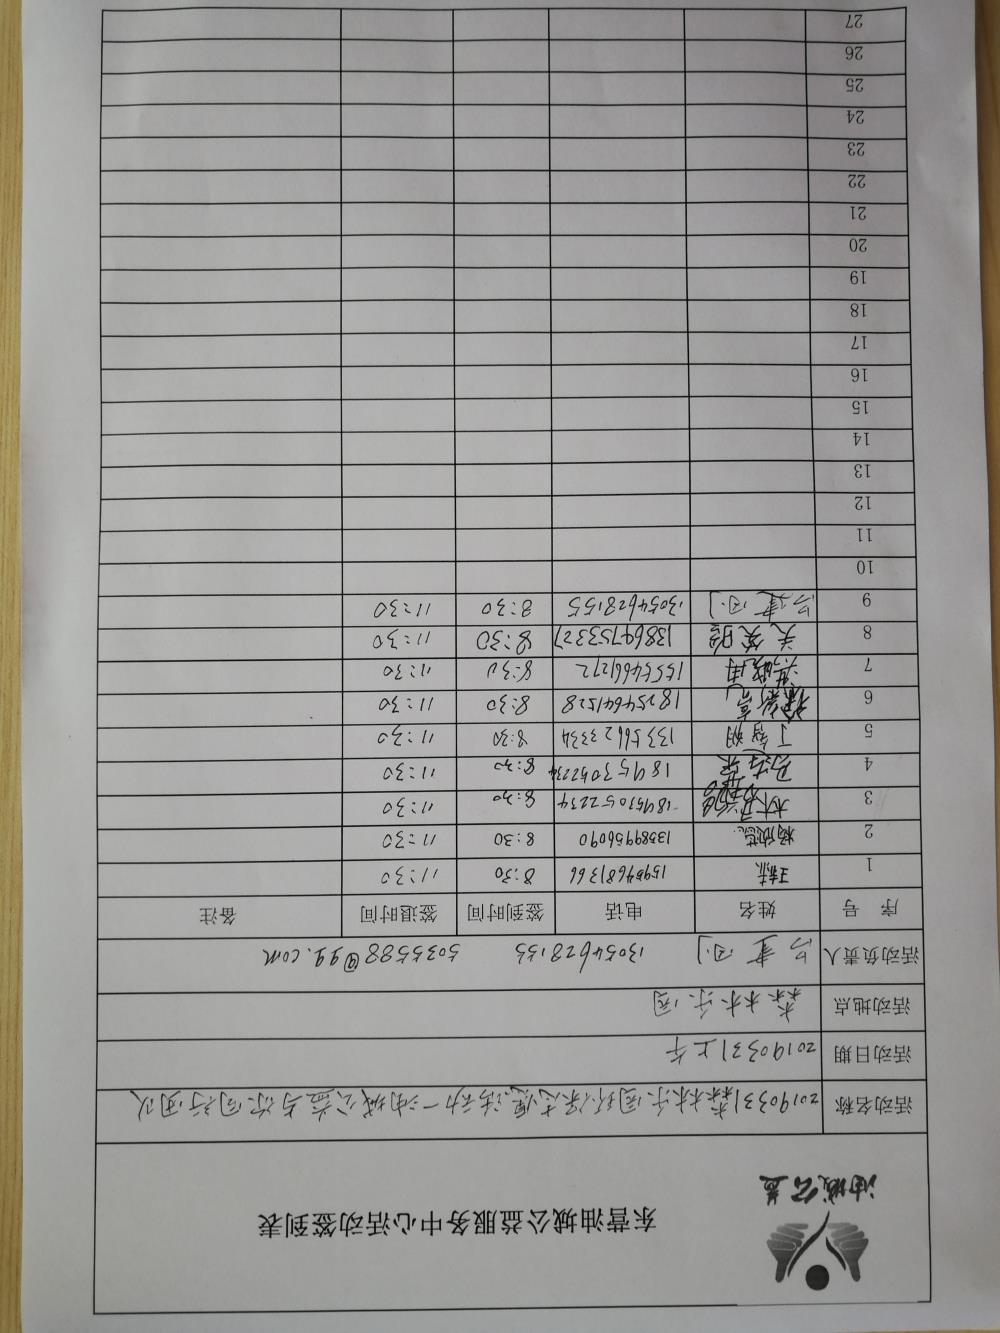 油城公益
东营油城公益服务中心活动签到表
活动名称 20190331森林乐园环保志愿活动—油城公益与你同行团队
活动日期 20190331上午
活动地点 森林乐园
活动负责人 13054628155 5035588@qq.com
序号 姓名 电话 签到时间 签退时间 备注
1 15954681366 8:30 11:30
2 杨欣蕊 13589956090 8:30 11:30
3 184953052234 8:30 11:30
4 184953052234 8:30 11:30
5 丁智明 13356623334 8:30 11:30
6 18254641528 8:30 11:30
7 15554661272 8:30 11:30
8 13864753327 8:30 11:30
9 13054628155 8:30 11:30
10
11
12
13
14
15
16
17
18
19
20
21
22
23
24
25
26
27